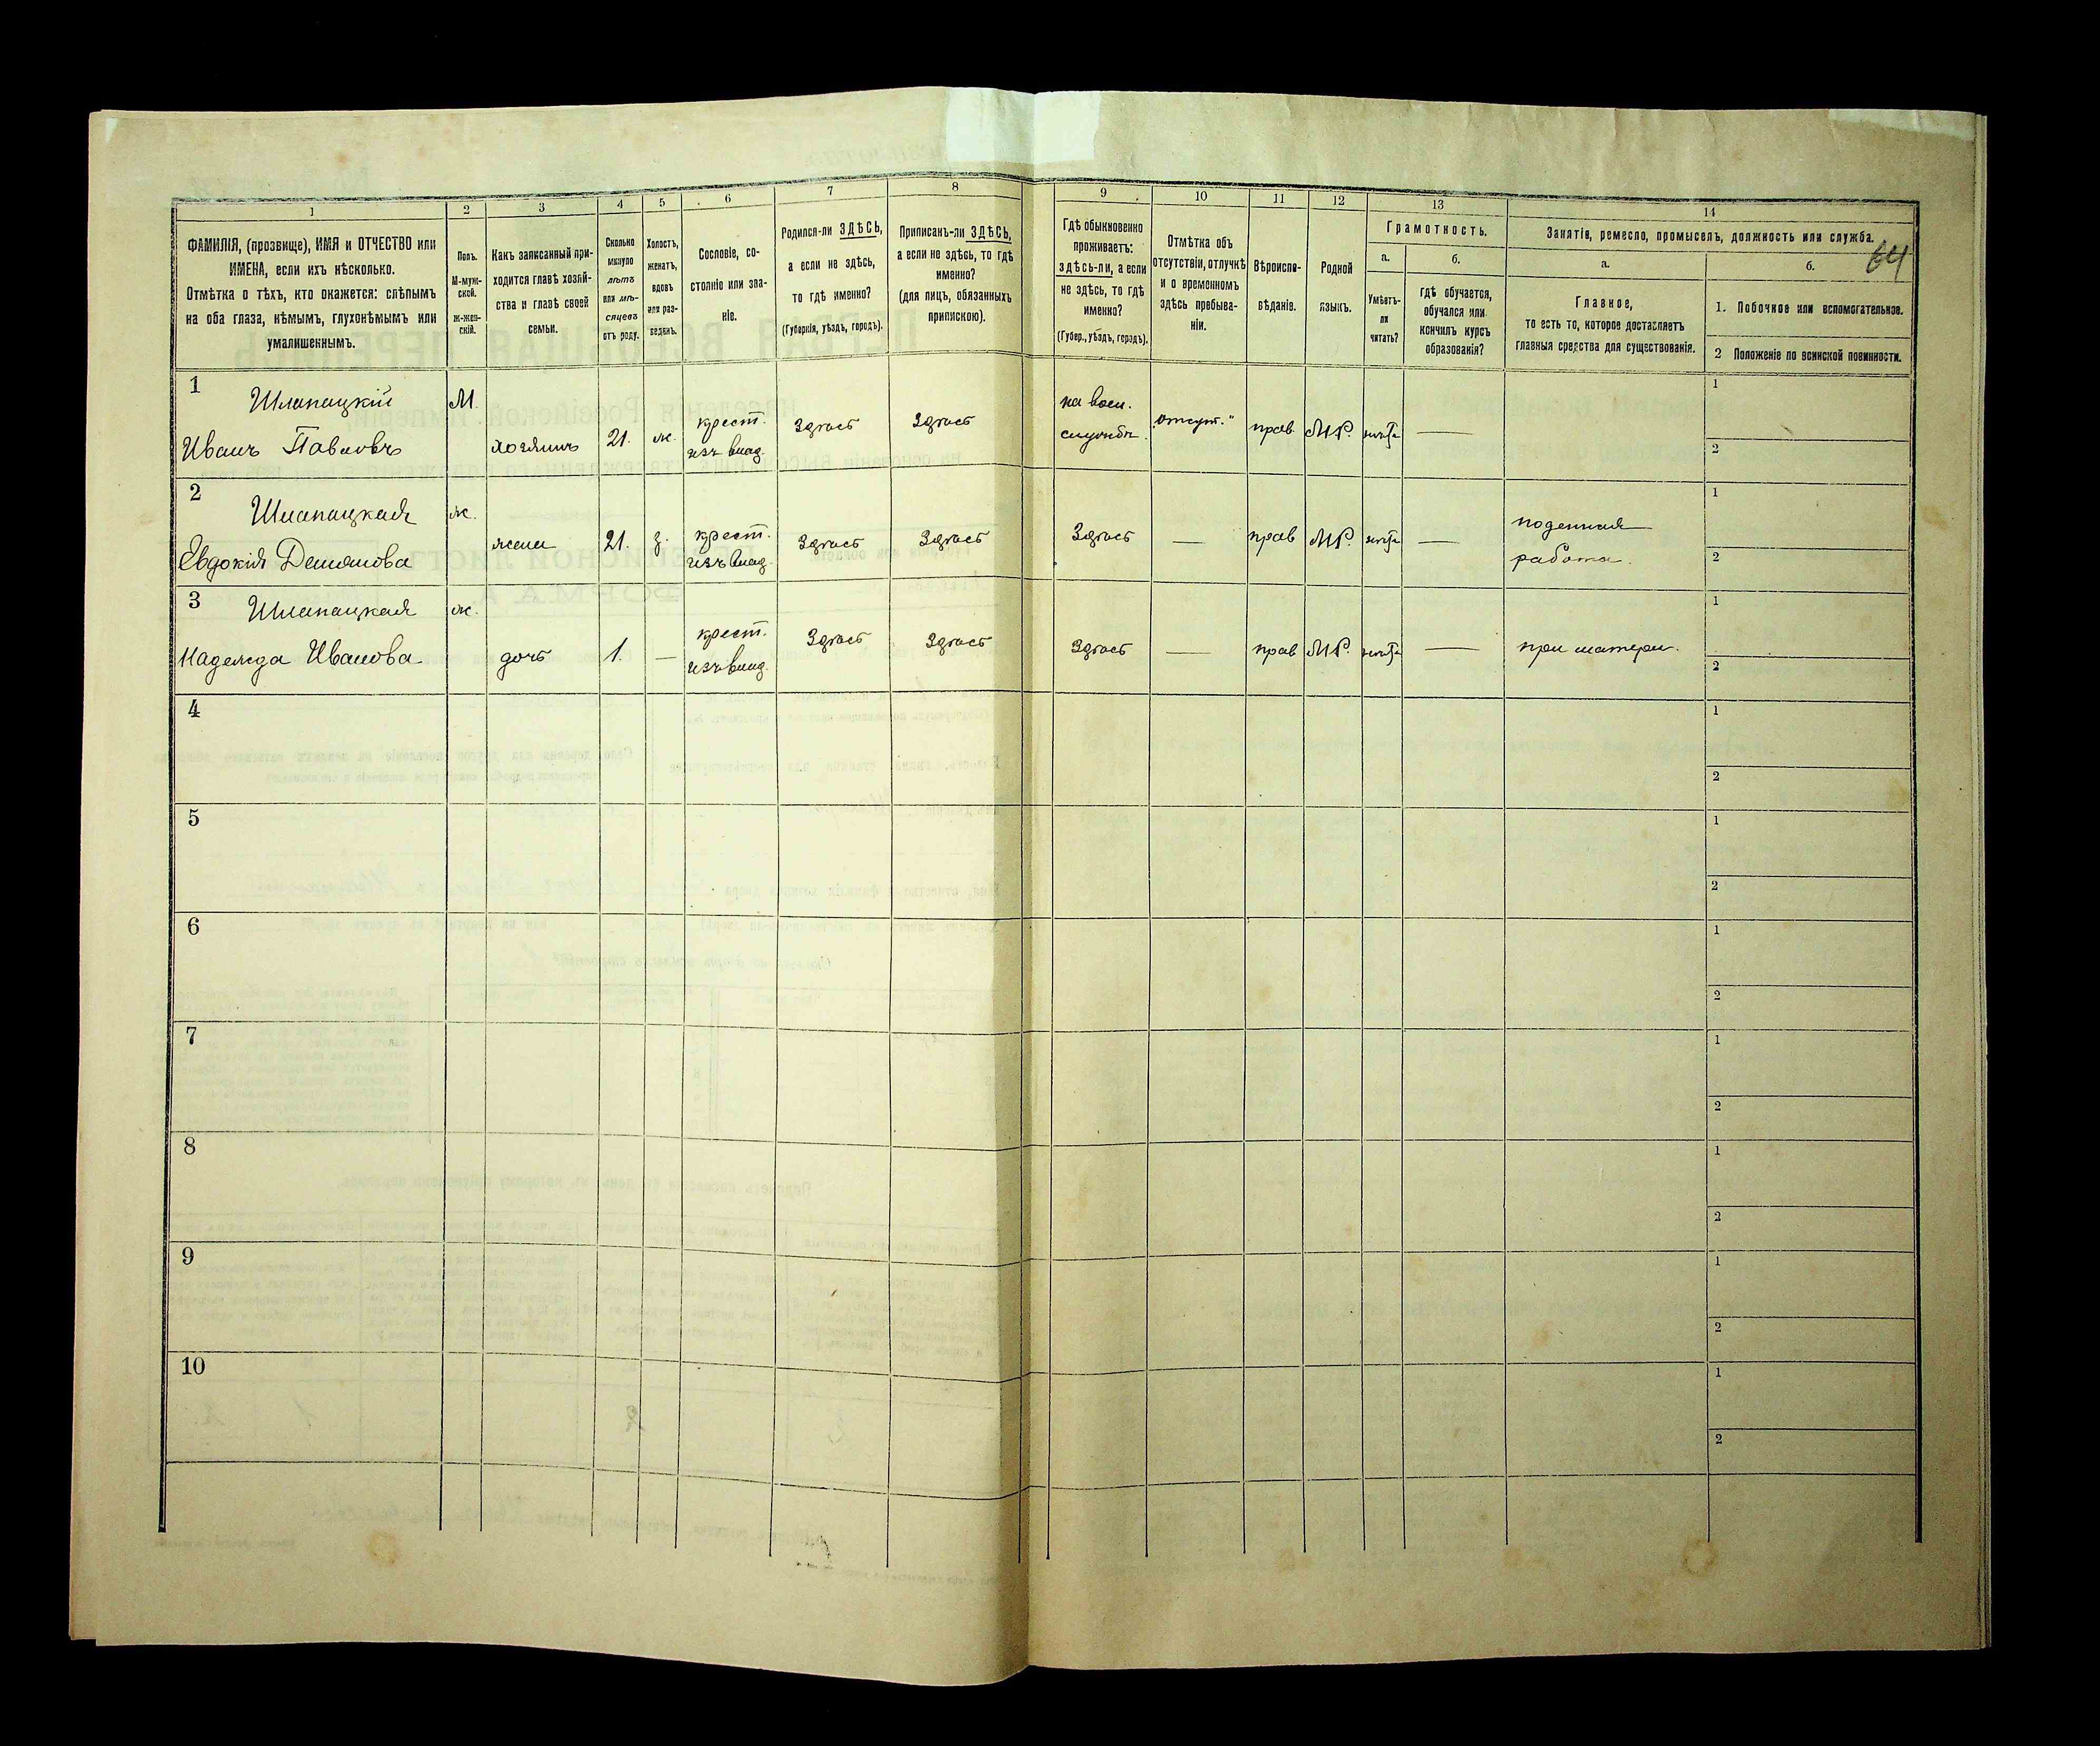 1
2
3
4
5
6
7
8
9
10
11
12
13
14
ФАМИЛІЯ, (прозвище), ИМЯ и ОТЧЕСТВО или
ИМЕНА, если ихъ нѣсколько.
Отмѣтка о тѣхъ, кто окажется: слѣпымъ
на оба глаза, нѣмымъ, глухонѣмымъ или
умалишеннымъ.
Полъ.
М-муж-
ской.
Ж-жен-
скій.
Какъ записанный при-
ходится главѣ хозяй-
ства и главѣ своей
семьи.
Сколько
минуло
лѣтъ
или мѣ-
сяцевъ
отъ роду.
Холостъ,
женатъ,
вдовъ
или раз-
веденъ.
Сословіе, со-
стояніе или зва-
ніе.
Родился-ли ЗДѢСЬ,
а если не здѣсь,
то гдѣ именно?
(Губернія, уѣздъ, городъ).
Приписанъ-ли ЗДѢСЬ,
а если не здѣсь, то гдѣ
именно?
(для лицъ, обязанныхъ
припискою).
Гдѣ обыкновенно
проживаетъ:
здѣсь-ли, а если
не здѣсь, то гдѣ
именно?
(Губер., уѣздъ, городъ).
Отмѣтка объ
отсутствіи, отлучкѣ
и о временномъ
здѣсь пребыва-
ніи.
Вѣроиспо-
вѣданіе.
Родной
языкъ.
Грамотность.
а.
Умѣетъ-
ли
читать?
б.
Гдѣ обучается,
обучался или
кончилъ курсъ
образованія?
Занятіе, ремесло, промыселъ, должность или служба.
64
а.
Главное,
то есть то, которое доставляетъ
главныя средства для существованія.
б.
1. Побочное или вспомогательное.
2 Положеніе по воинской повинности.
1
Шлапацкій
Иванъ Павловъ
М.
хозяинъ
21.
ж.
крест.
изъ влад.
Здѣсь
Здѣсь
на воен.
службѣ.
"отсут."
прав
М.Р.
нѣтъ
—
1
2
2
Шлапацкая
Евдокія Демянова
ж.
жена
21.
з.
крест.
изъ влад.
Здѣсь
Здѣсь
Здѣсь
—
прав
М.Р.
нѣтъ
—
поденная
работа.
1
2
3
Шлапацкая
Надежда Иванова
ж.
дочь
1.
—
крест.
изъ влад.
Здѣсь
Здѣсь
Здѣсь
—
прав
М.Р.
нѣтъ
—
при матери.
1
2
4
1
2
5
1
2
6
1
2
7
1
2
8
1
2
9
1
2
10
1
2